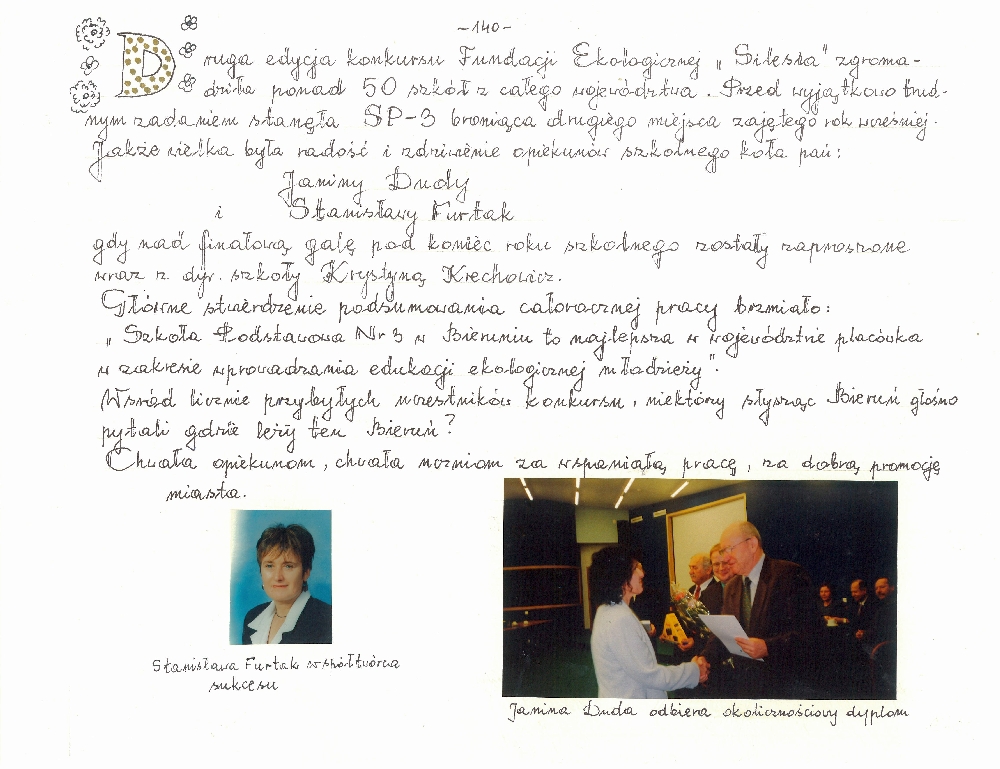 -140-
Druga edycja konkursu Fundacji Ekologicznej „Silesia" zgroma-
dziła ponad 50 szkół z całego województwa. Przed wyjątkowo trud-
nym zadaniem stanęła SP-3 broniąca drugiego miejsca zajętego rok wcześniej.
Jakże wielka była radość i zdziwienie opiekunów szkolnego koła pań:
Janiny Dudy
i Stanisławy Furtak
gdy nad finałową galę pod koniec roku szkolnego zostały zaproszone
wraz z dyr. szkoły Krystyną Krechowicz.
Główne stwierdzenie podsumowania całorocznej pracy brzmiało:
„Szkoła Podstawowa Nr 3 w Bieruniu to najlepsza w województwie placówka
w zakresie wprowadzania edukacji ekologicznej młodzieży".
Wśród licznie przybyłych uczestników konkursu, niektórzy słysząc Bieruń głośno
pytali gdzie leży ten Bieruń?
Chwała opiekunom, chwała uczniom za wspaniałą pracę, za dobrą promocję
miasta.
Stanisława Furtak współtwórca
sukcesu
Janina Duda odbiera okolicznościowy dyplom